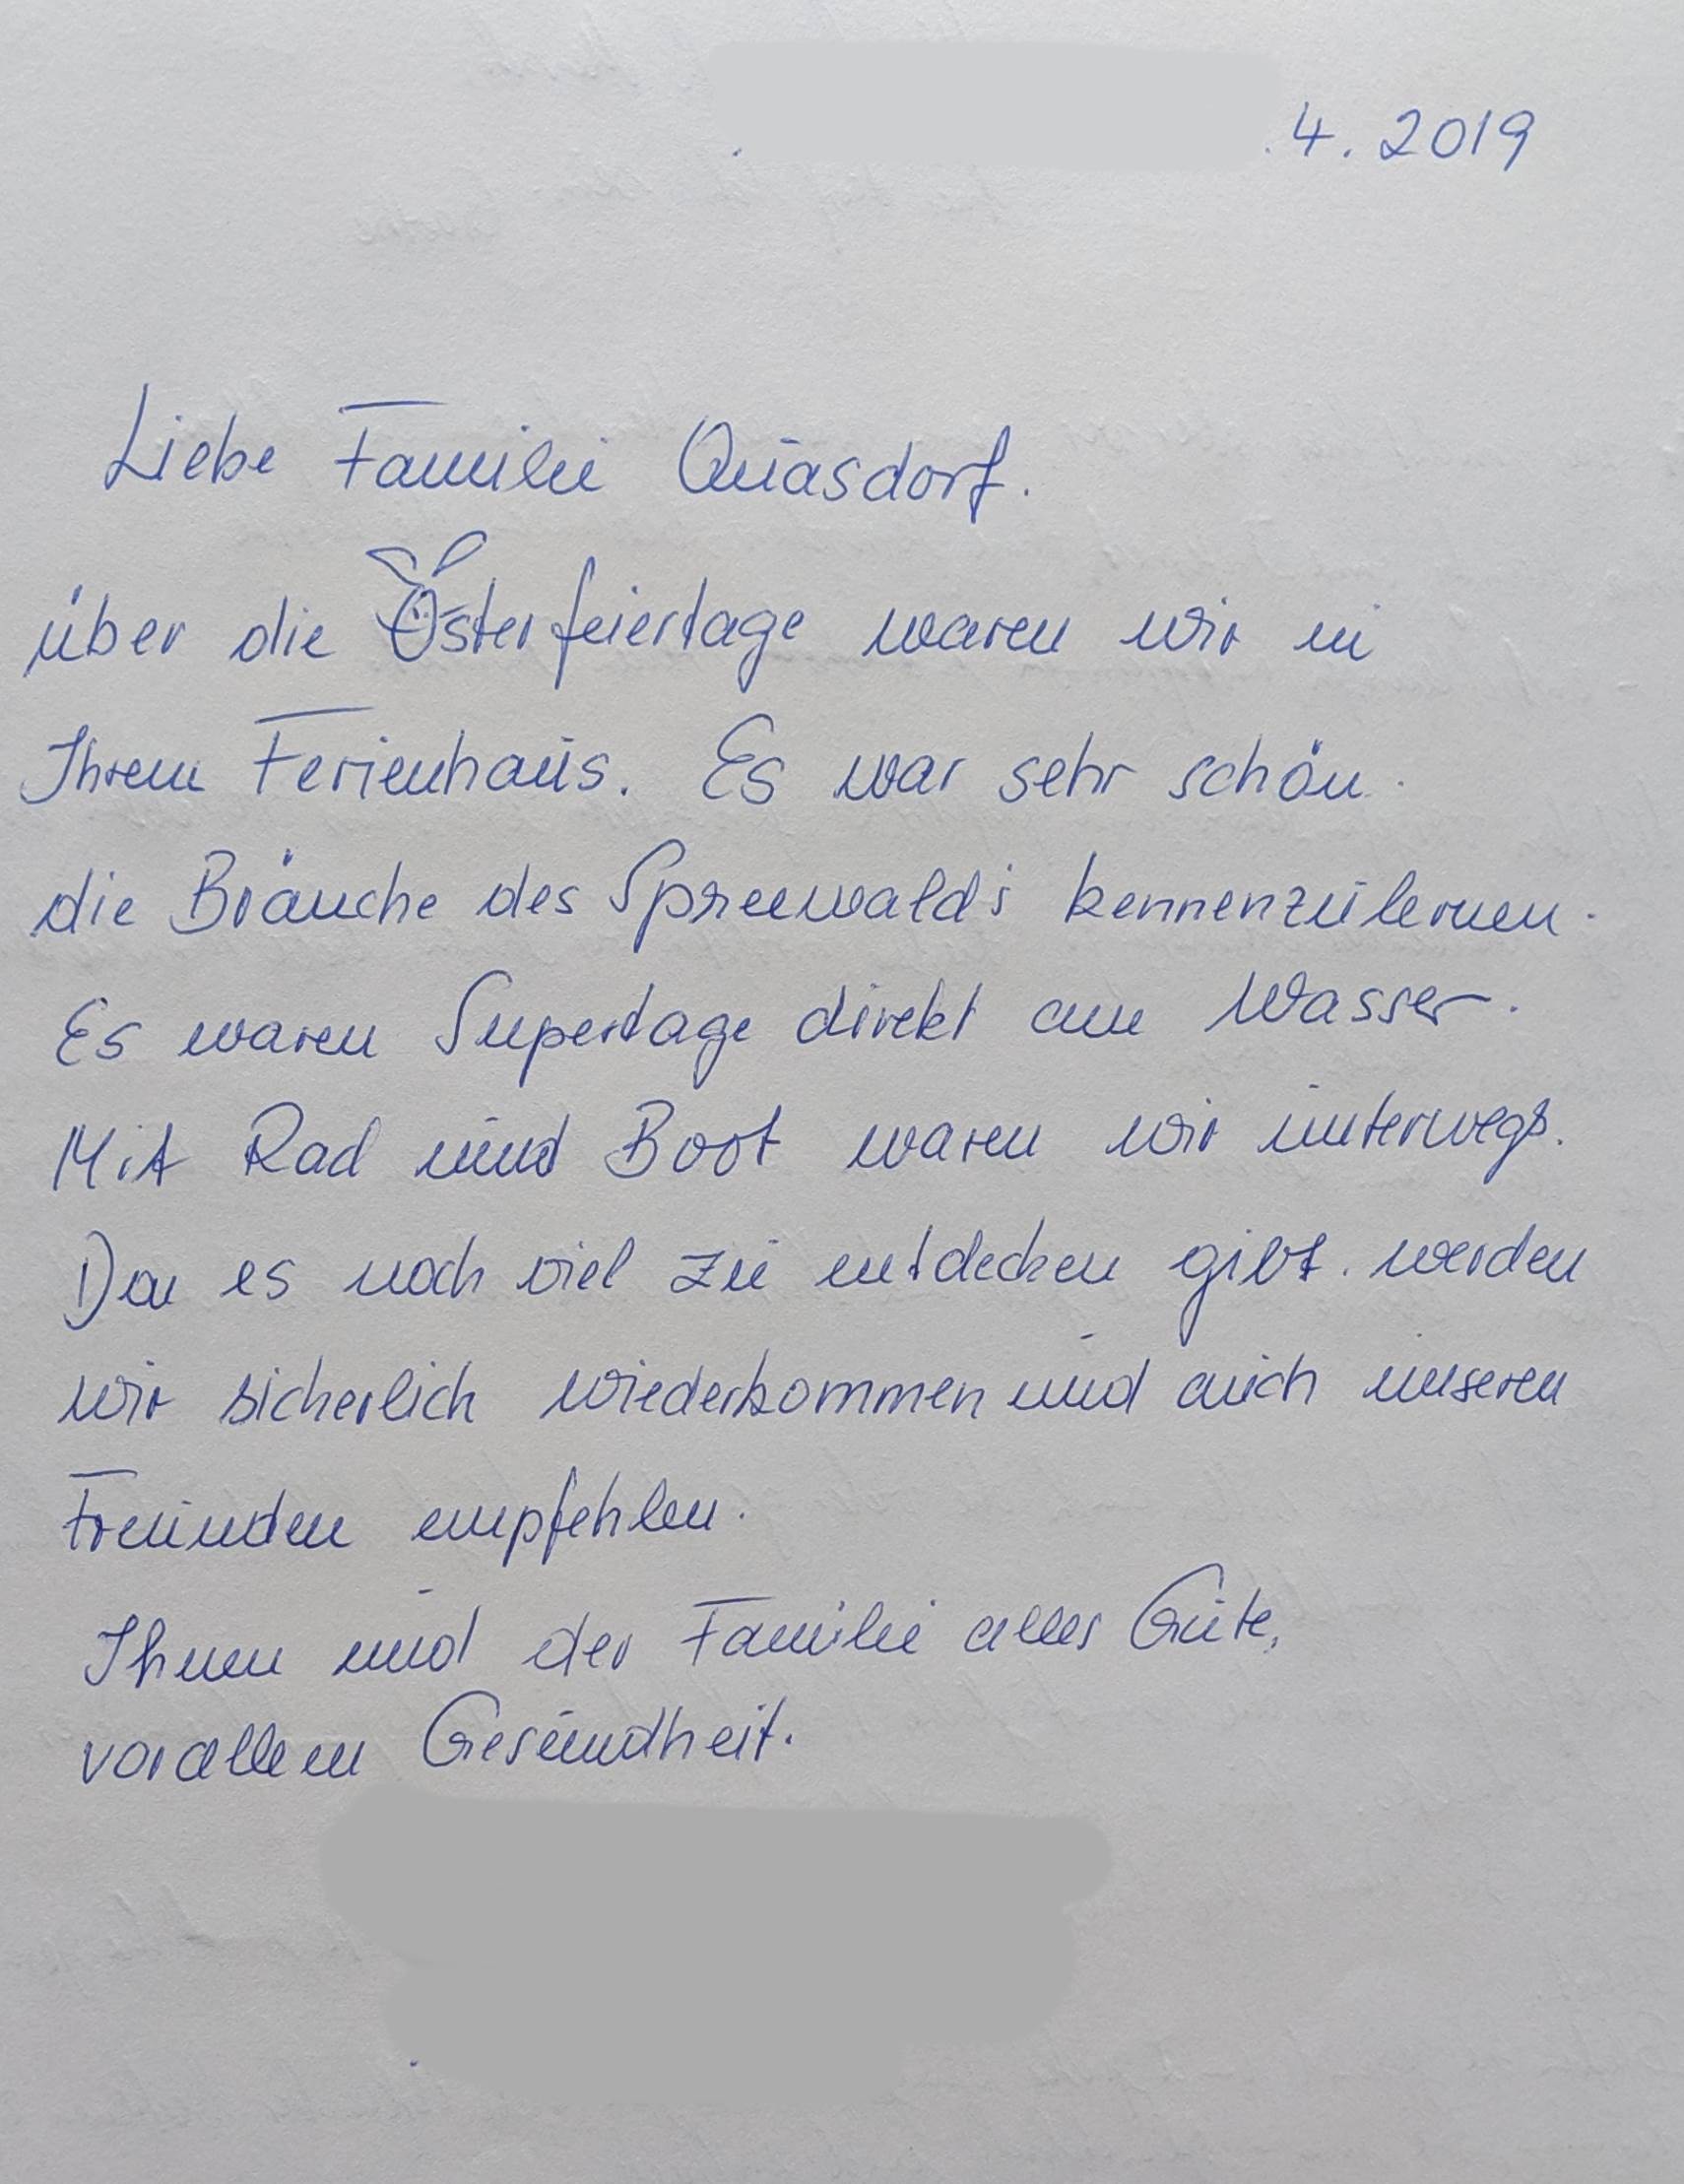 .4.2019
Liebe Familie Quasdorf.
über die Osterfeiertage waren wir in
Ihrem Ferienhaus. Es war sehr schön.
die Bräuche des Spreewald's kennenzulernen.
Es waren Supertage direkt am Wasser.
Mit Rad und Boot waren wir unterwegs.
Da es noch viel zu entdecken gibt. werden
wir sicherlich wiederkommen und auch unseren
Freunden empfehlen.
Ihnen und der Familie alles Gute,
vorallem Gesundheit.